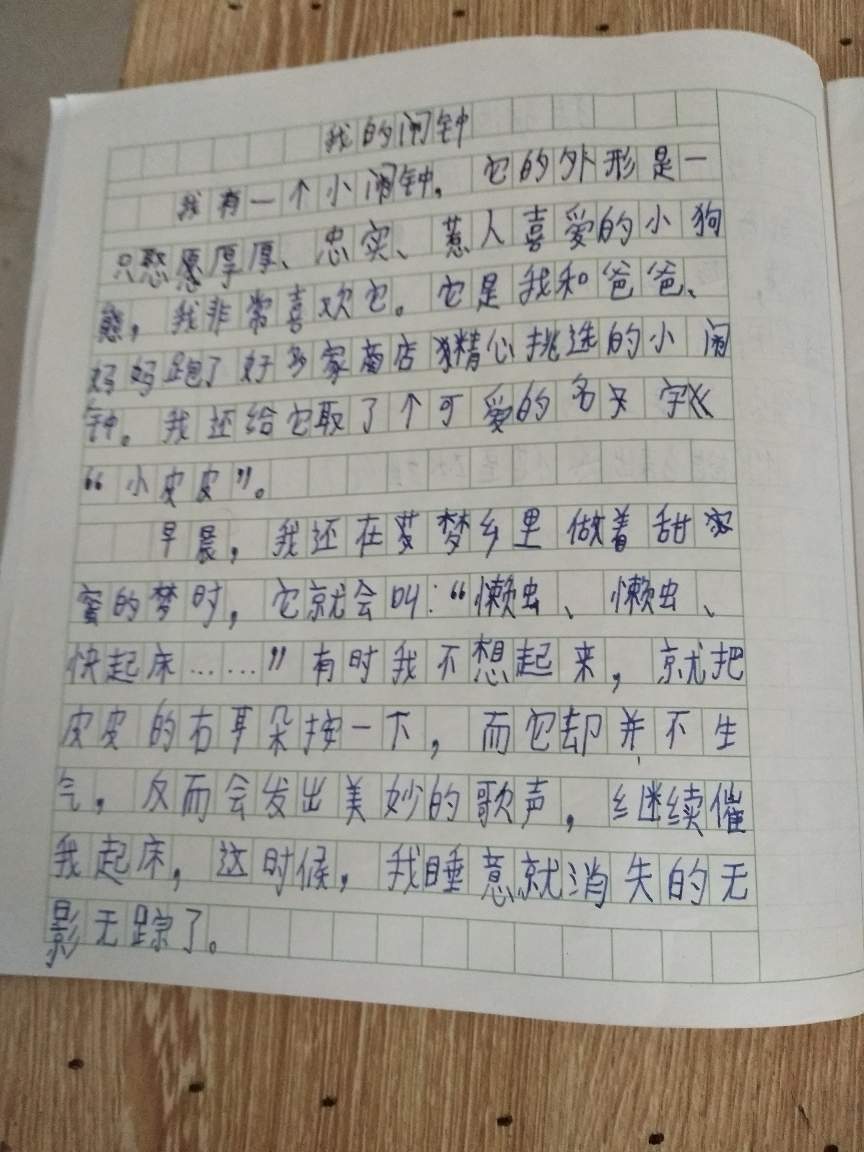 我的闹钟
我有一个小闹钟，它的外形是一
只憨厚厚、忠实、惹人喜爱的小狗
，我非常喜欢它。它是我和爸爸、
妈妈跑了好多家商店精心挑选的小闹
钟。我还给它取了个可爱的名字
“小皮皮”。
早晨，我还在梦乡里做着甜
蜜的梦时，它就会叫：“懒虫、懒虫、
快起床……”有时我不想起来，就把
皮皮的右耳朵按一下，而它却并不生
气，反而会发出美妙的歌声，继续催
我起床，这时候，我睡意就消失的无
影无踪了。